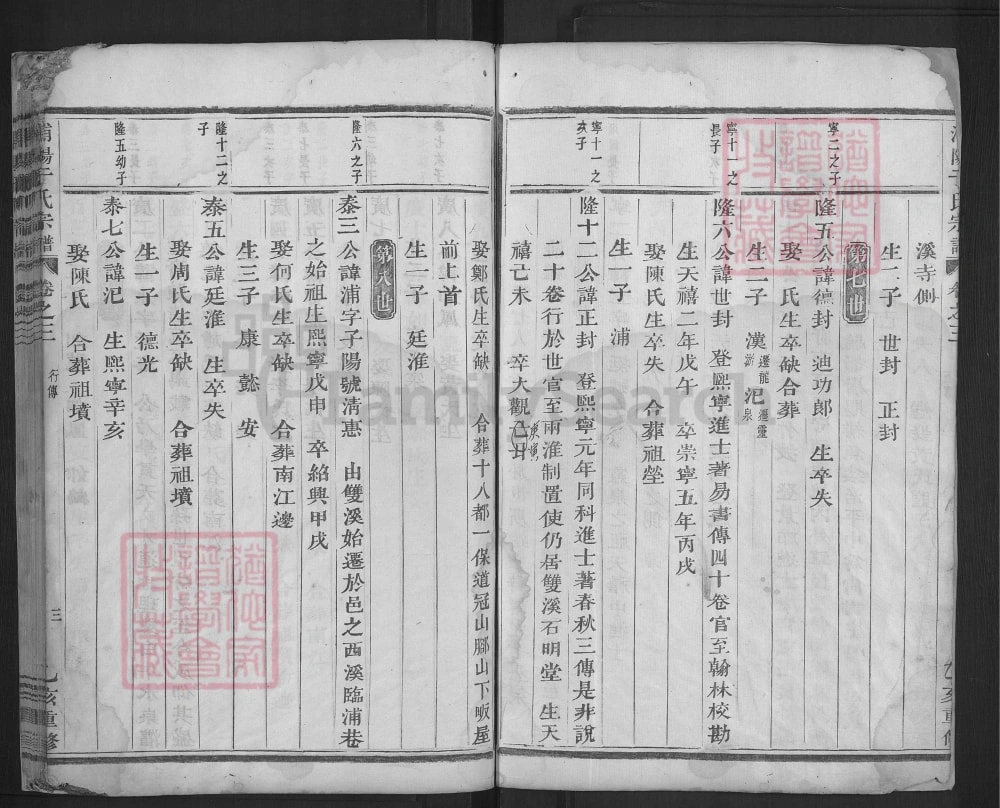 溪寺側
生二子 世封 正封
第七世
寧二之子
隆五公諱德封 迪功郎 生卒失
娶 氏生卒缺合葬
生二子 漢 遷龍游 汜 遷靈泉
寧十一之長子
隆六公諱世封 登熙寧進士著易書傳四十卷官至翰林校勘
生天禧二年戊午 卒崇寧五年丙戌
娶陳氏生卒失 合葬祖塋
生一子 浦
寧十一之亥子
隆十二公諱正封 登熙寧元年同科進士著春秋三傳是非說
二十卷行於世官至兩淮制置使仍居雙溪石明堂 生天
禧己未 卒大觀己丑
娶鄭氏生卒缺 合葬十八都一保道冠山腳山下畈屋
前上首
生一子 廷淮
第八世
隆六之子
泰三公諱浦字子陽號清惠 由雙溪始遷於邑之西溪臨浦巷
之始祖生熙寧戊申 卒紹興甲戌
娶何氏生卒缺 合葬南江邊
生三子 康 懿 安
隆十二之子
泰五公諱廷淮 生卒失
娶周氏生卒缺 合葬祖墳
生一子 德光
隆五幼子
泰七公諱汜 生熙寧辛亥
娶陳氏 合葬祖墳
浦陽于氏宗譜 卷之三 行傳 三 乙亥重修
FamilySearch